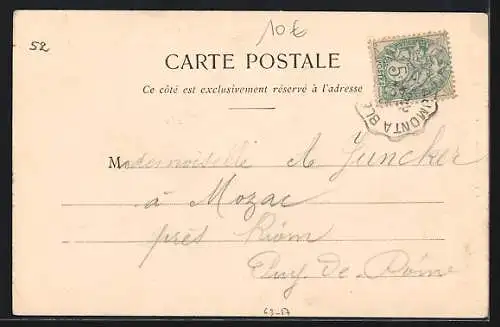 52
10€
CARTE POSTALE
Ce côté est exclusivement réservé à l'adresse
5
UMONT A BLE
Mademoiselle A Juncker
à Mozac
près Riom
Puy-de-Dôme
63-57